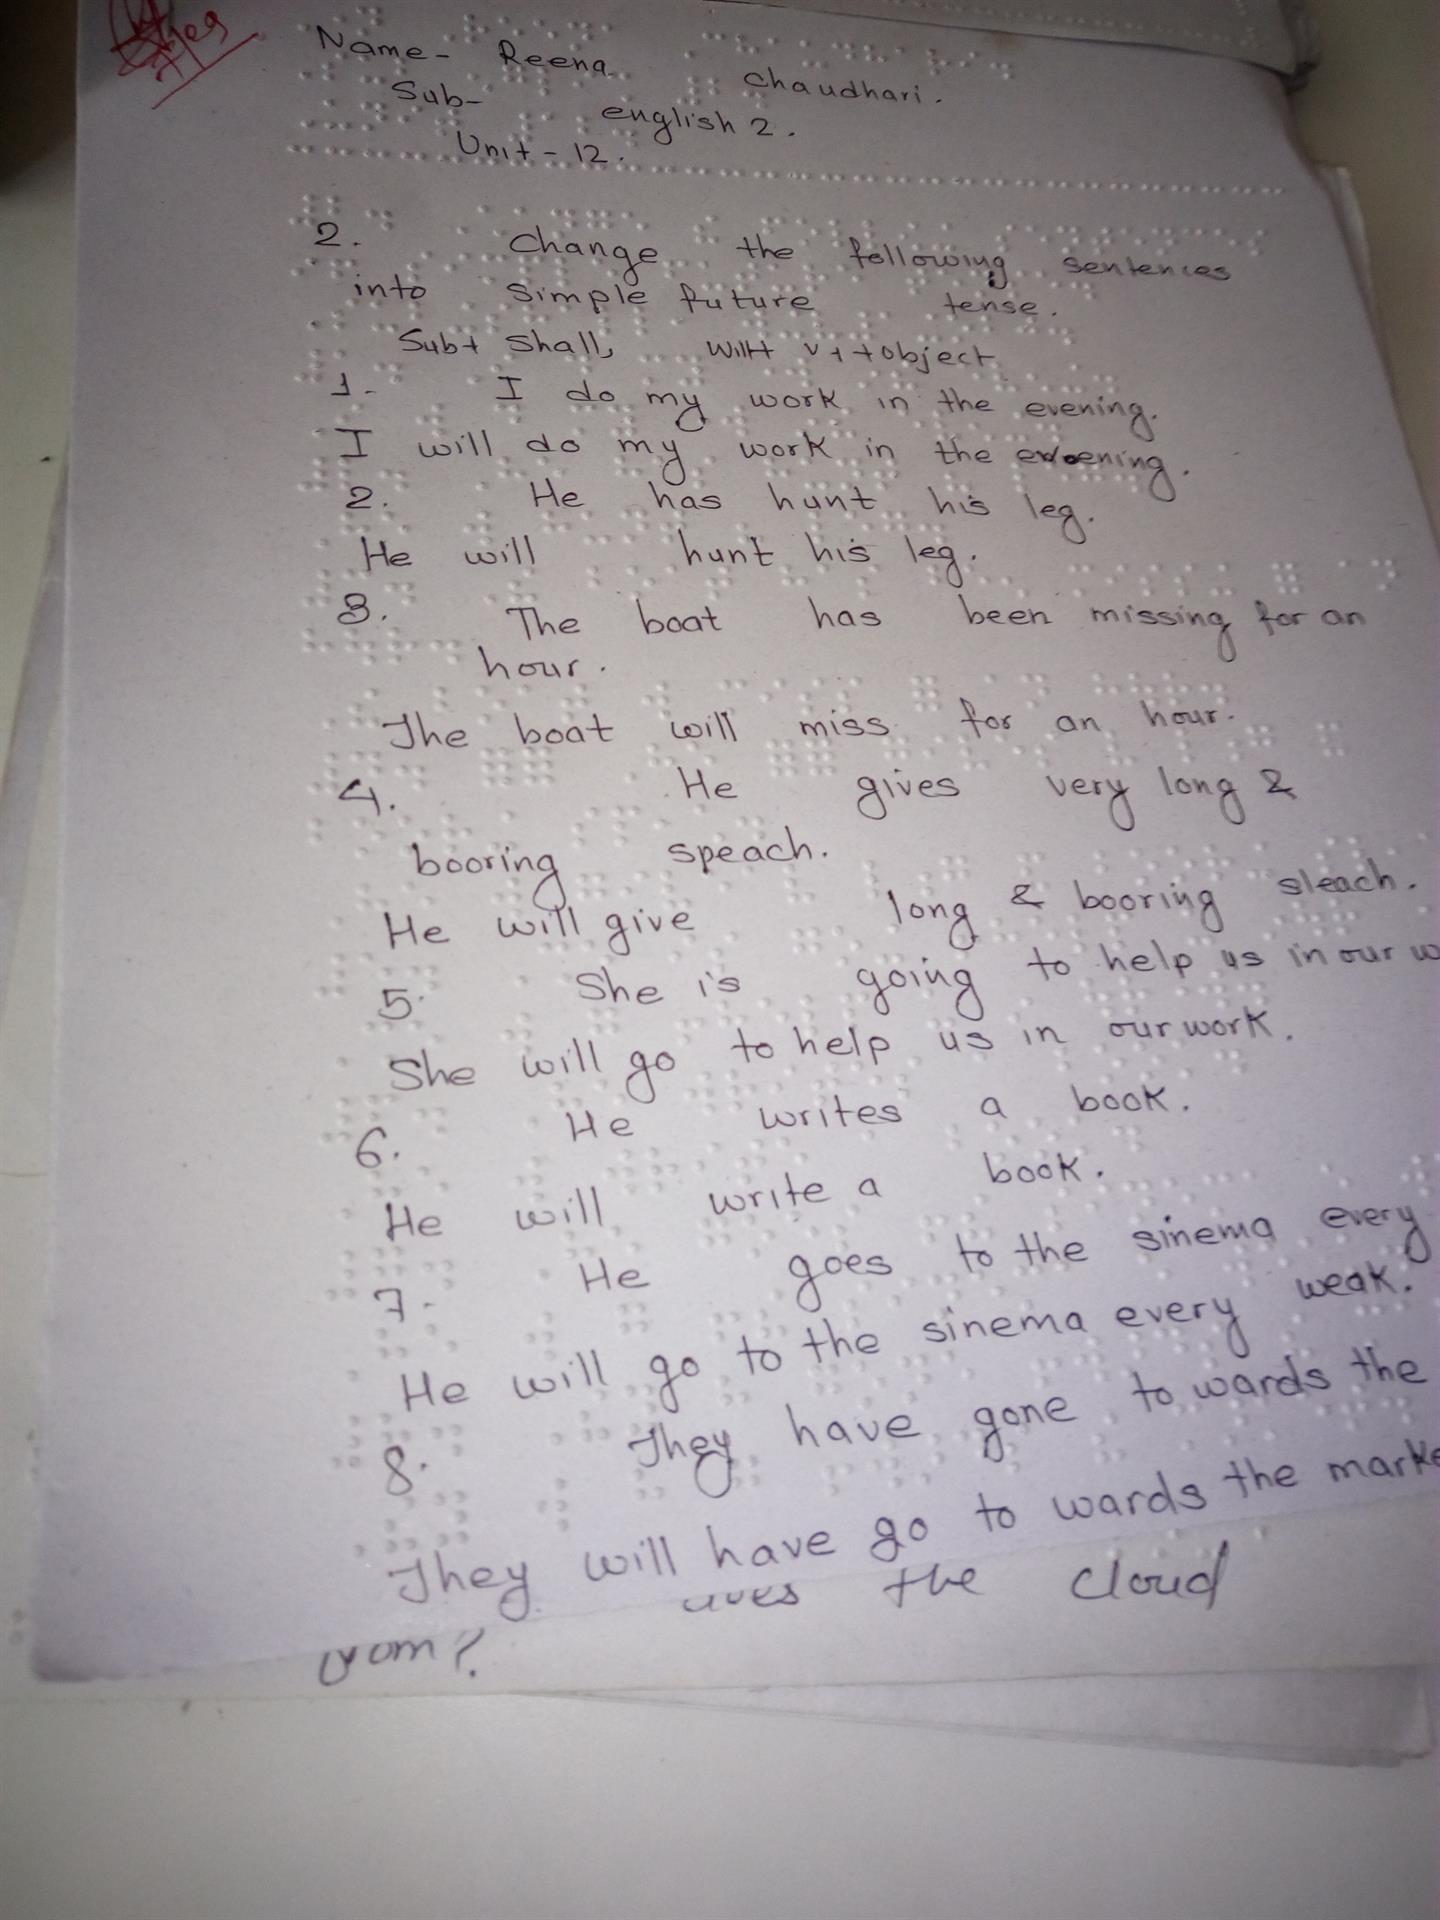 Name- Reena Chaudhari.
Sub- english 2.
Unit - 12.
2. Change the following sentences
into simple future tense.
Sub+ shall, will+ v1 +object
1. I do my work in the evening.
I will do my work in the evening.
2. He has hunt his leg.
He will hunt his leg.
3. The boat has been missing for an
hour.
The boat will miss for an hour.
4. He gives very long &
booring speach.
He will give long & booring sleach.
5. She is going to help us in our w
She will go to help us in our work.
6. He writes a book.
He will write a book.
7. He goes to the sinema every
weak.
He will go to the sinema every
8. They have gone to wards the
They will have go to wards the marke
the cloud